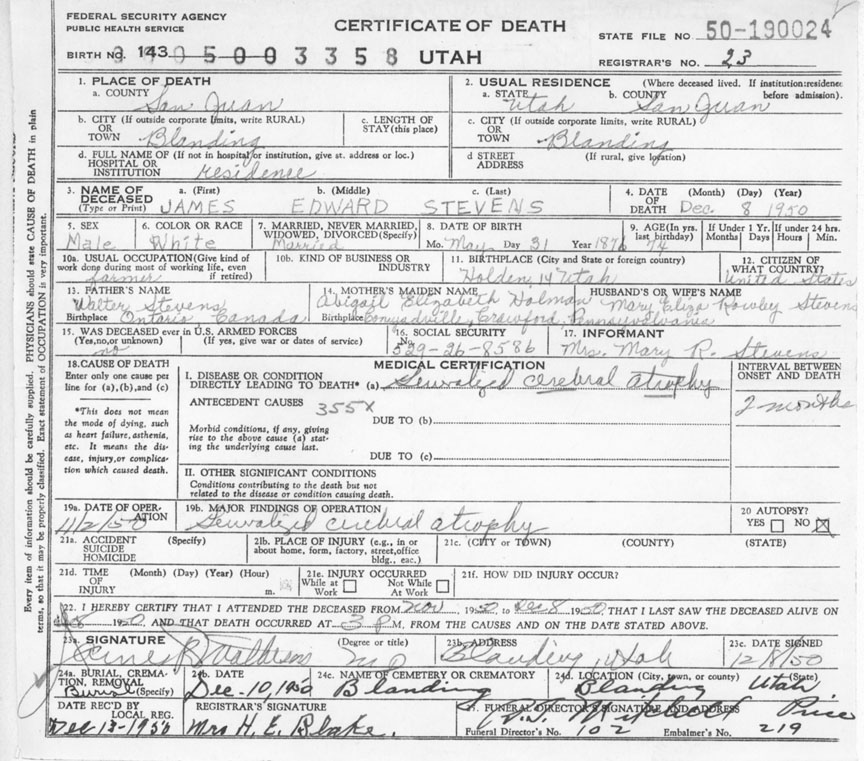 FEDERAL SECURITY AGENCY
PUBLIC HEALTH SERVICE
CERTIFICATE OF DEATH
STATE FILE NO. 50-190024
BIRTH NO. 143 5003358 UTAH
REGISTRAR'S NO. 23
1. PLACE OF DEATH
a. COUNTY San Juan
2. USUAL RESIDENCE (Where deceased lived. If institution:residence before admission).
a. STATE Utah b. COUNTY San Juan
b. CITY (If outside corporate limits, write RURAL) OR TOWN Blanding
c. LENGTH OF STAY (this place)
c. CITY (If outside corporate limits, write RURAL) OR TOWN Blanding
d. FULL NAME OF (If not in hospital or institution, give st. address or loc.) HOSPITAL OR INSTITUTION residence
d STREET ADDRESS (If rural, give location)
3. NAME OF DECEASED (Type or Print)
a. (First) JAMES b. (Middle) EDWARD c. (Last) STEVENS
4. DATE OF DEATH (Month) (Day) (Year) Dec. 8 1950
5. SEX Male
6. COLOR OR RACE White
7. MARRIED, NEVER MARRIED, WIDOWED, DIVORCED(Specify) Married
8. DATE OF BIRTH Mo. May Day 31 Year 1876
9. AGE(In yrs. last birthday) 74
If Under 1 Yr. Months Days
If under 24 hrs. Hours Min.
10a. USUAL OCCUPATION (Give kind of work done during most of working life, even if retired) farmer
10b. KIND OF BUSINESS OR INDUSTRY
11. BIRTHPLACE (City and State or foreign country) Holden, Utah
12. CITIZEN OF WHAT COUNTRY? United States
13. FATHER'S NAME Walter Stevens
Birthplace Ontario Canada
14. MOTHER'S MAIDEN NAME Abigail Elizabeth Holman
Birthplace Crawford, Pennsylvania
HUSBAND'S OR WIFE'S NAME Mary Eliza Rowley Stevens
15. WAS DECEASED ever in U.S. ARMED FORCES
(Yes,no,or unknown) (If yes, give war or dates of service) no
16. SOCIAL SECURITY No. 529-26-8586
17. INFORMANT Mrs. Mary R. Stevens
18.CAUSE OF DEATH
Enter only one cause per line for (a),(b),and (c)
*This does not mean the mode of dying, such as heart failure,asthenia, etc. It means the disease, injury,or complication which caused death.
MEDICAL CERTIFICATION
INTERVAL BETWEEN ONSET AND DEATH
I. DISEASE OR CONDITION DIRECTLY LEADING TO DEATH* (a) Generalized cerebral atrophy
2 months
ANTECEDENT CAUSES 355X
DUE TO (b)
Morbid conditions, if any, giving rise to the above cause (a) stating the underlying cause last.
DUE TO (c)
II. OTHER SIGNIFICANT CONDITIONS
Conditions contributing to the death but not related to the disease or condition causing death.
19a. DATE OF OPERATION 11/2/50
19b. MAJOR FINDINGS OF OPERATION Generalized cerebral atrophy
20 AUTOPSY? YES NO
21a. ACCIDENT SUICIDE HOMICIDE (Specify)
21b. PLACE OF INJURY (e.g., in or about home, form, factory, street,office bldg., eac.)
21c. (CITY or TOWN) (COUNTY) (STATE)
21d. TIME OF INJURY (Month) (Day) (Year) (Hour) m.
21e. INJURY OCCURRED While at Work Not While At Work
21f. HOW DID INJURY OCCUR?
22. I HEREBY CERTIFY THAT I ATTENDED THE DECEASED FROM Nov 1950, to Dec 8 1950, THAT I LAST SAW THE DECEASED ALIVE ON
1950, AND THAT DEATH OCCURRED AT 3 P M, FROM THE CAUSES AND ON THE DATE STATED ABOVE.
23a. SIGNATURE (Degree or title) MD
23b. ADDRESS Blanding Utah
23c. DATE SIGNED 12/8/50
24a. BURIAL, CREMATION, REMOVAL (Specify) Burial
24b. DATE Dec-10,1950
24c. NAME OF CEMETERY OR CREMATORY Blanding
24d. LOCATION (City, town, or county) (State) Blanding Utah
DATE REC'D BY LOCAL REG. Dec 13-1950
REGISTRAR'S SIGNATURE Mrs H. E. Blake.
FUNERAL DIRECTOR'S SIGNATURE AND ADDRESS Mitchell Price
Funeral Director's No. 102 Embalmer's No. 219
Every item of information should be carefully supplied. PHYSICIANS should state CAUSE OF DEATH in plain
terms, so that it may be properly classified. Exact statement of OCCUPATION is very important.